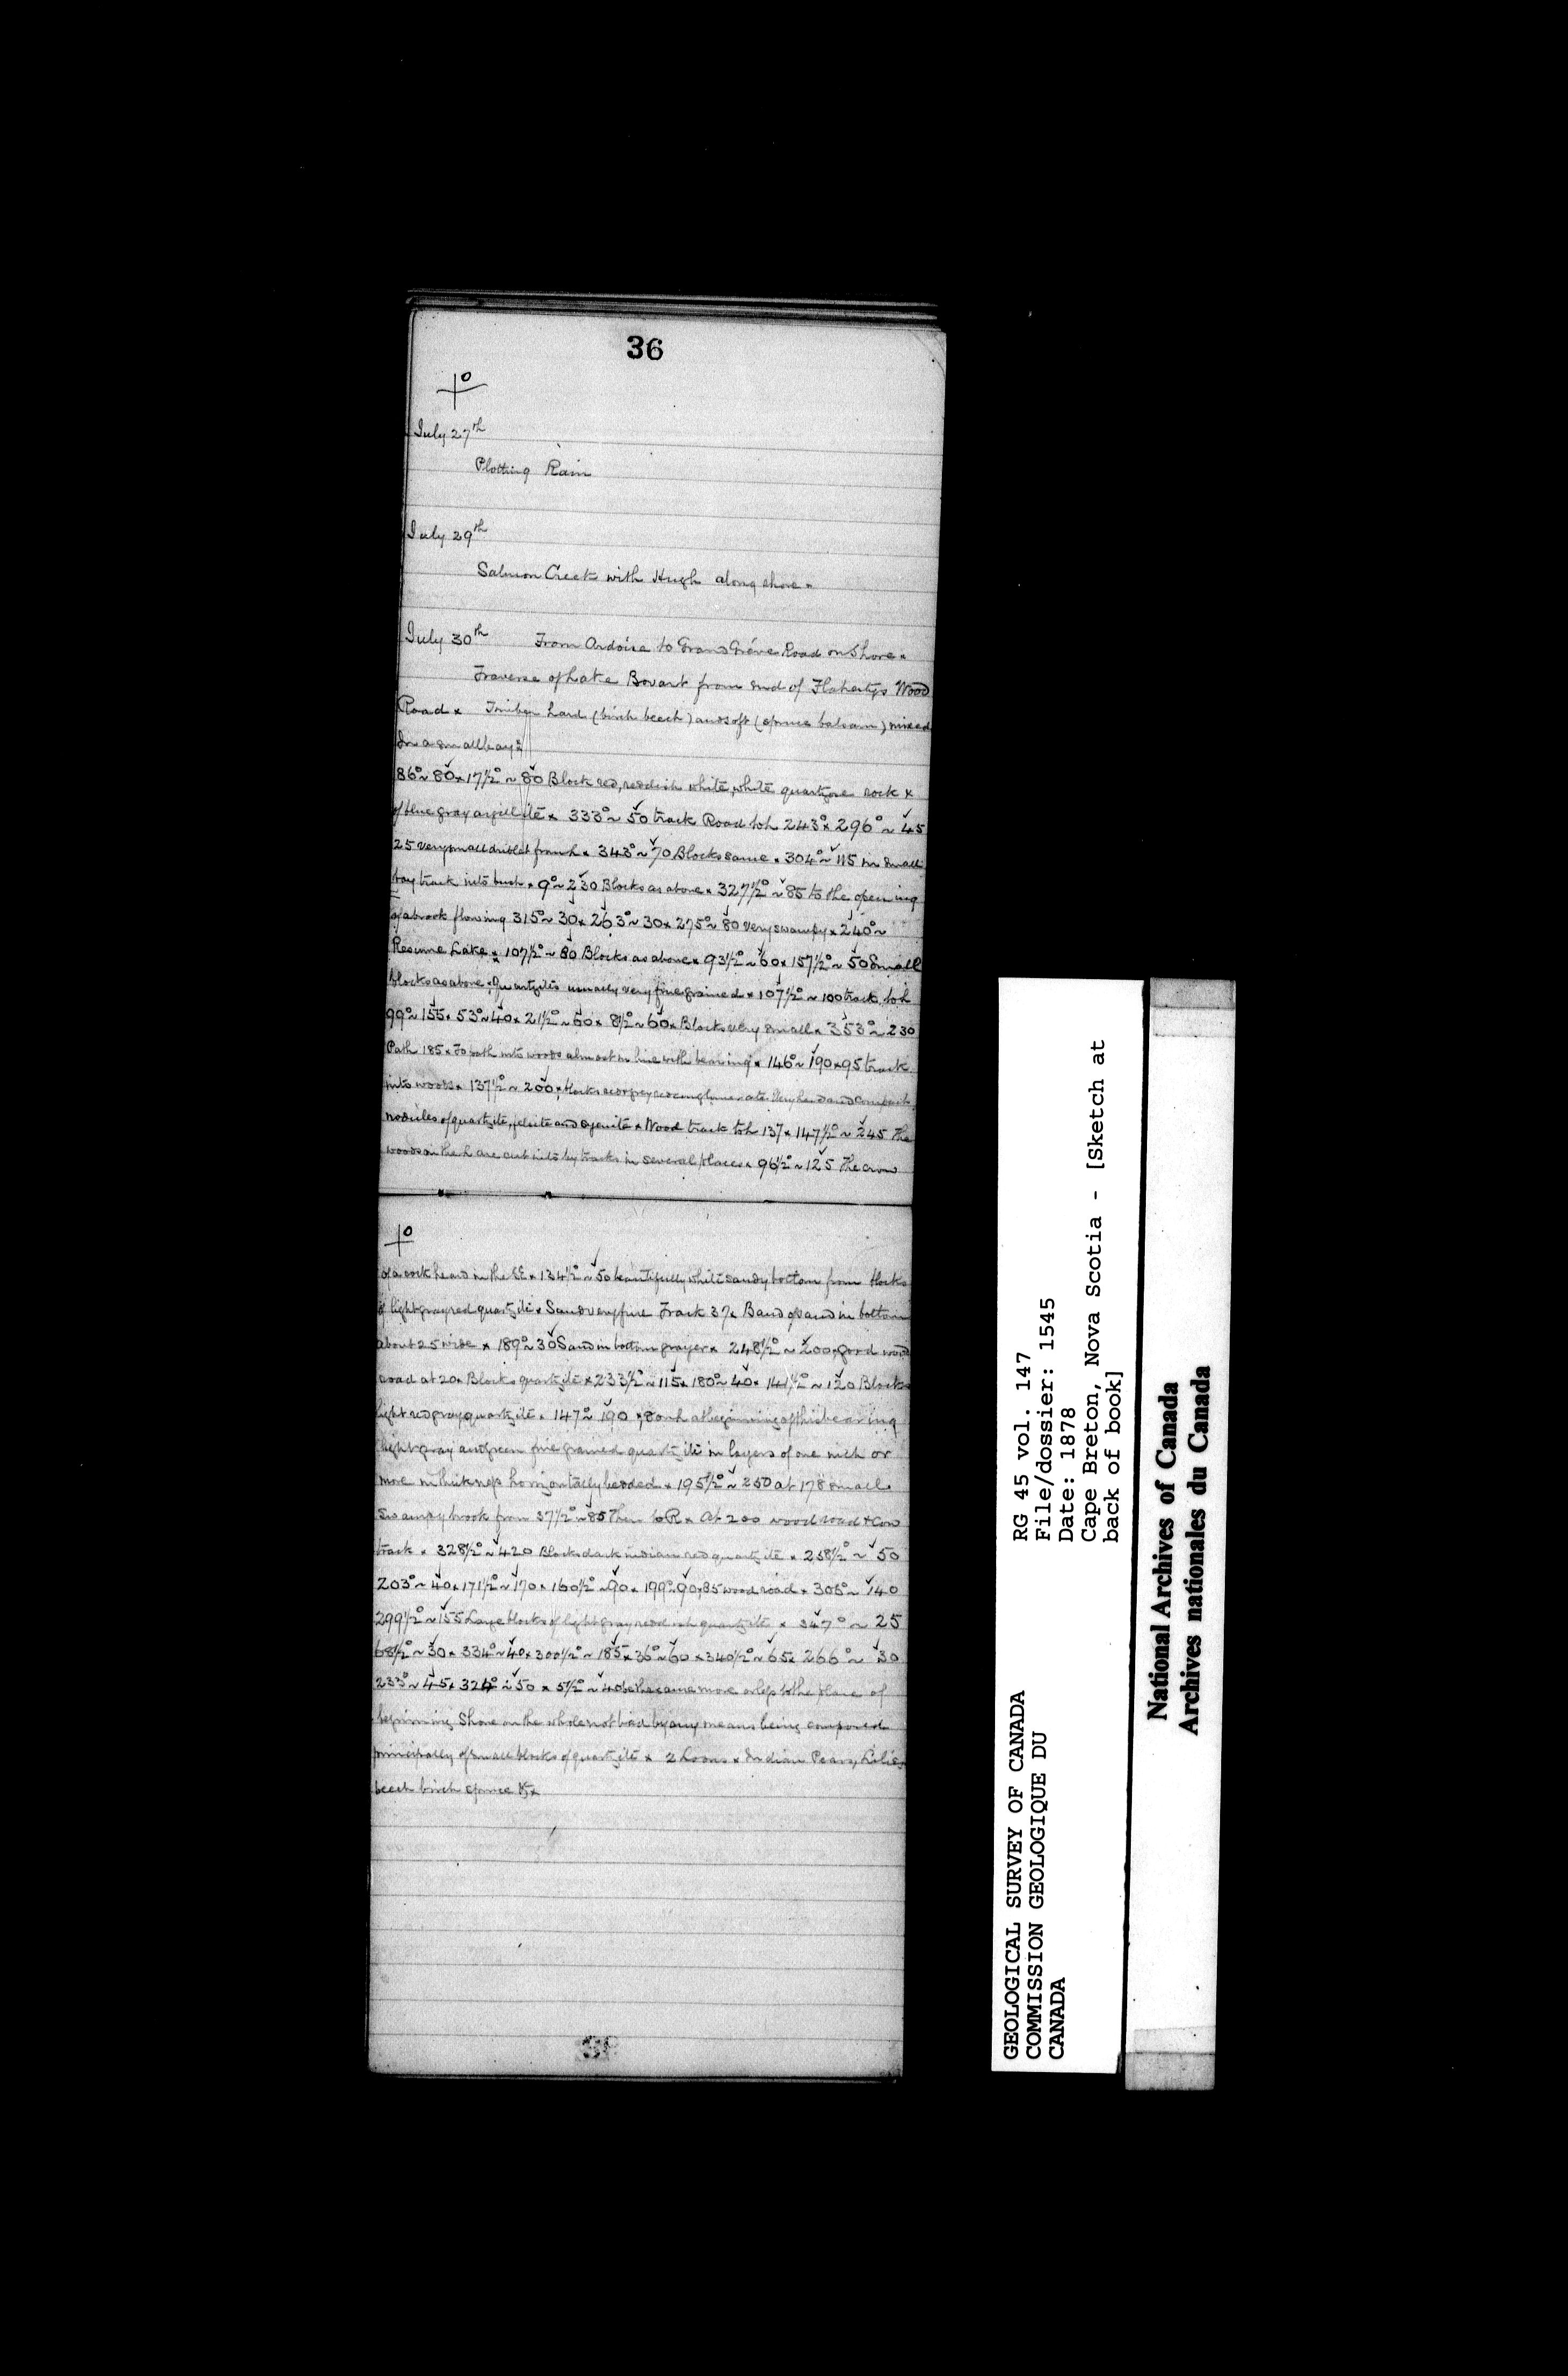 36
0
July 27th
Plotting Rain
July 29th
Salmon Creek with Hugh along shore.
July 30th From Ardoise to Grand Gréve Road on Shore.
Traverse of Lake Bovart from end of Flahertys Wood
Road x Timber hard (birch beech) and soft (spruce balsam) mixed
In a small bay:
86° ~ 80 x 17½° ~ 80 Block red, reddish white, white quartzose rock x
of blue gray argillite x 333° ~ 50 track Road to h 243° x 296° ~ 45
25 very small driblet from h x 343° ~ 70 Blocks same x 304° ~ 115 in small
bay track into bush x 9° ~ 230 Blocks as above x 327½° ~ 85 to the opening
of a brook flowing 315° ~ 30 x 263° ~ 30 x 275° ~ 80 very swampy x 240° ~
Resume Lake x 107½° ~ 80 Blocks as above x 93½° ~ 60 x 157½° ~ 50 Small
blocks as above; Quartzites usually very fine grained x 107½° ~ 100 track to h
99° ~ 155 x 53° ~ 40 x 21½° ~ 60 x 8½° ~ 60 x Blocks very small x 353° ~ 230
Path 185 x To path into woods almost in line with bearing x 146° ~ 190 x 95 track
into woods x 137½° ~ 200 x blocks red gray conglomerate. Very hard and compact
nodules of quartzite, felsite and syenite x Wood track to h 137 x 147½° ~ 245 The
woods on the h are cut into by tracks in several places x 96½° ~ 125 The crow
0
of a cock heard in the SE x 134½° ~ 50 beautifully white sandy bottom from blocks
of light gray red quartzite x Sand very fine Track 37 x Band of sand in bottom
about 25 wide x 189° ~ 30 Sand in bottom grayer x 248½° ~ 200, good wood
road at 20 x Blocks quartzite x 233½° ~ 115 x 180° ~ 40 x 141½° ~ 120 Blocks
light red gray quartzite x 147° ~ 190 x 80 on h at beginning of this bearing
light gray and green fine grained quartzite in layers of one inch or
more in thickness horizontally bedded x 195½° ~ 250 at 178 small
swampy brook from 37½° ~ 85 then to R x At 200 wood road + Cow
track x 328½° ~ 420 Blocks dark indian red quartzite x 258½° ~ 50
203° ~ 40 x 171½° ~ 170 x 160½° ~ 90 x 199° ~ 90, 85 wood road x 305° ~ 140
299½° ~ 155 Large blocks of light gray reddish quartzite x 347° ~ 25
68½° ~ 30 x 334° ~ 40 x 300½° ~ 185 x 36° ~ 60 x 340½° ~ 65 x 266° ~ 30
233° ~ 45 x 324° ~ 50 x 5½° ~ 40 the same more or less to the place of
beginning. Shore on the whole not bad by any means being composed
principally of small blocks of quartzite x 2 Loons x Indian Pears, Lilies,
beech birch spruce &c x
GEOLOGICAL SURVEY OF CANADA
COMMISSION GEOLOGIQUE DU
CANADA
RG 45 vol. 147
File/dossier: 1545
Date: 1878
Cape Breton, Nova Scotia - [Sketch at
back of book]
National Archives of Canada
Archives nationales du Canada